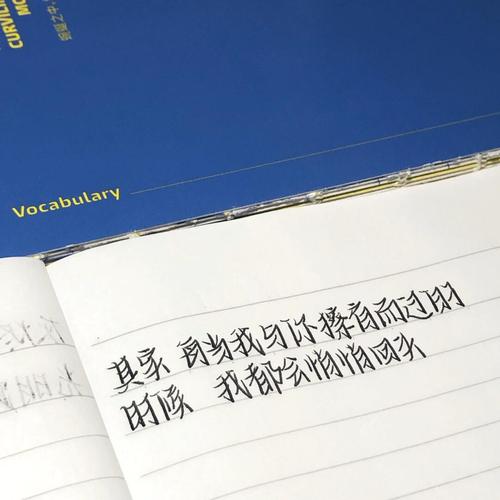 CURVILI
MO
Vocabulary
其实 每当我与你擦肩而过的
时候 我都会悄悄回头